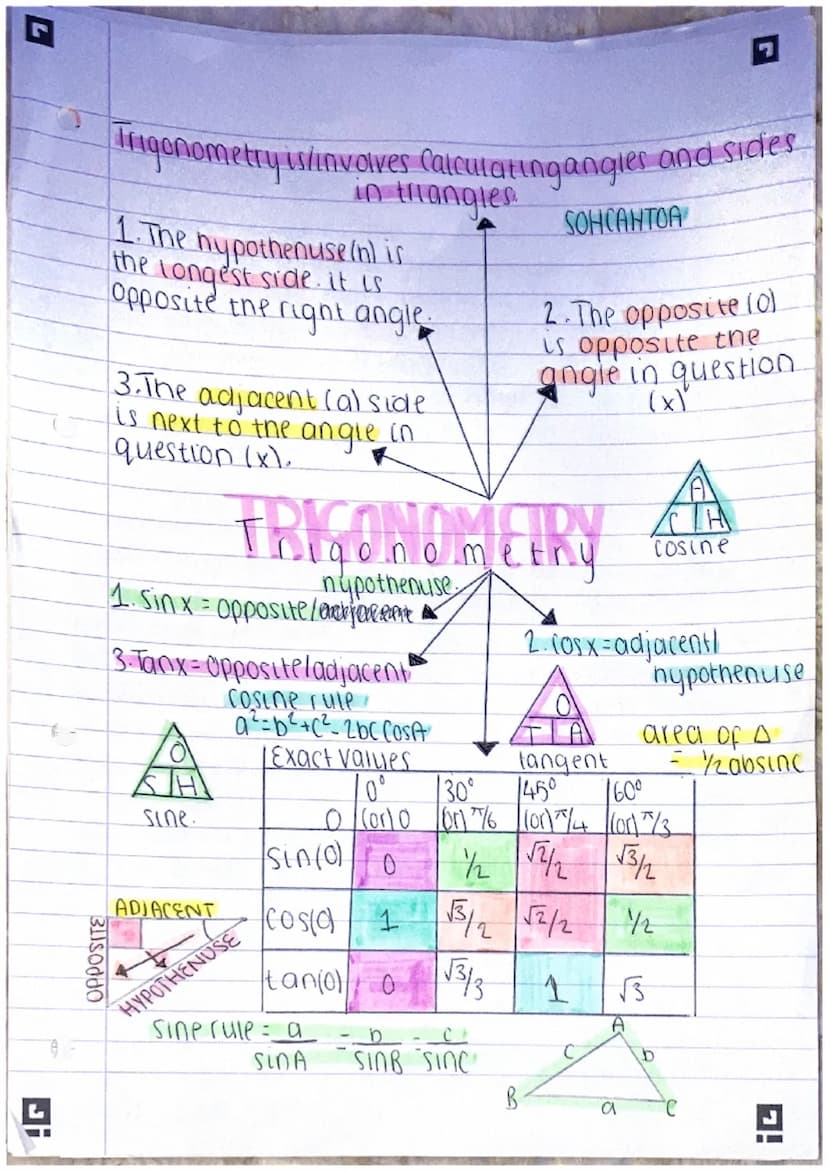 Trigonometry is/involves Calculating angles and sides
in triangles.
SOHCAHTOA
1. The hypothenuse(h) is
the longest side. it is
opposite the right angle.
2. The opposite (o)
is opposite the
angle in question
(x)
3. The adjacent (a) side
is next to the angle in
question (x).
A
C H
cosine
TRIGONOMETRY
Trigonometry
hypothenuse.
1. Sin x = opposite/
2. Cos x = adjacent/
hypothenuse
3. Tan x = opposite/adjacent
cosine rule
a² = b² + c² - 2bc CosA
O
T A
tangent
area of Δ
= ½ab sinc
O
S H
sine.
Exact values
0° 30° 45° 60°
0 (or) 0 (or) π/6 (or) π/4 (or) π/3
sin(0) 0 ½ √2/2 √3/2
cos(0) 1 √3/2 √2/2 ½
tan(0) 0 √3/3 1 √3
ADJACENT
OPPOSITE
HYPOTHENUSE
sine rule = a/sinA = b/sinB = c/sinC
A
c b
B a C